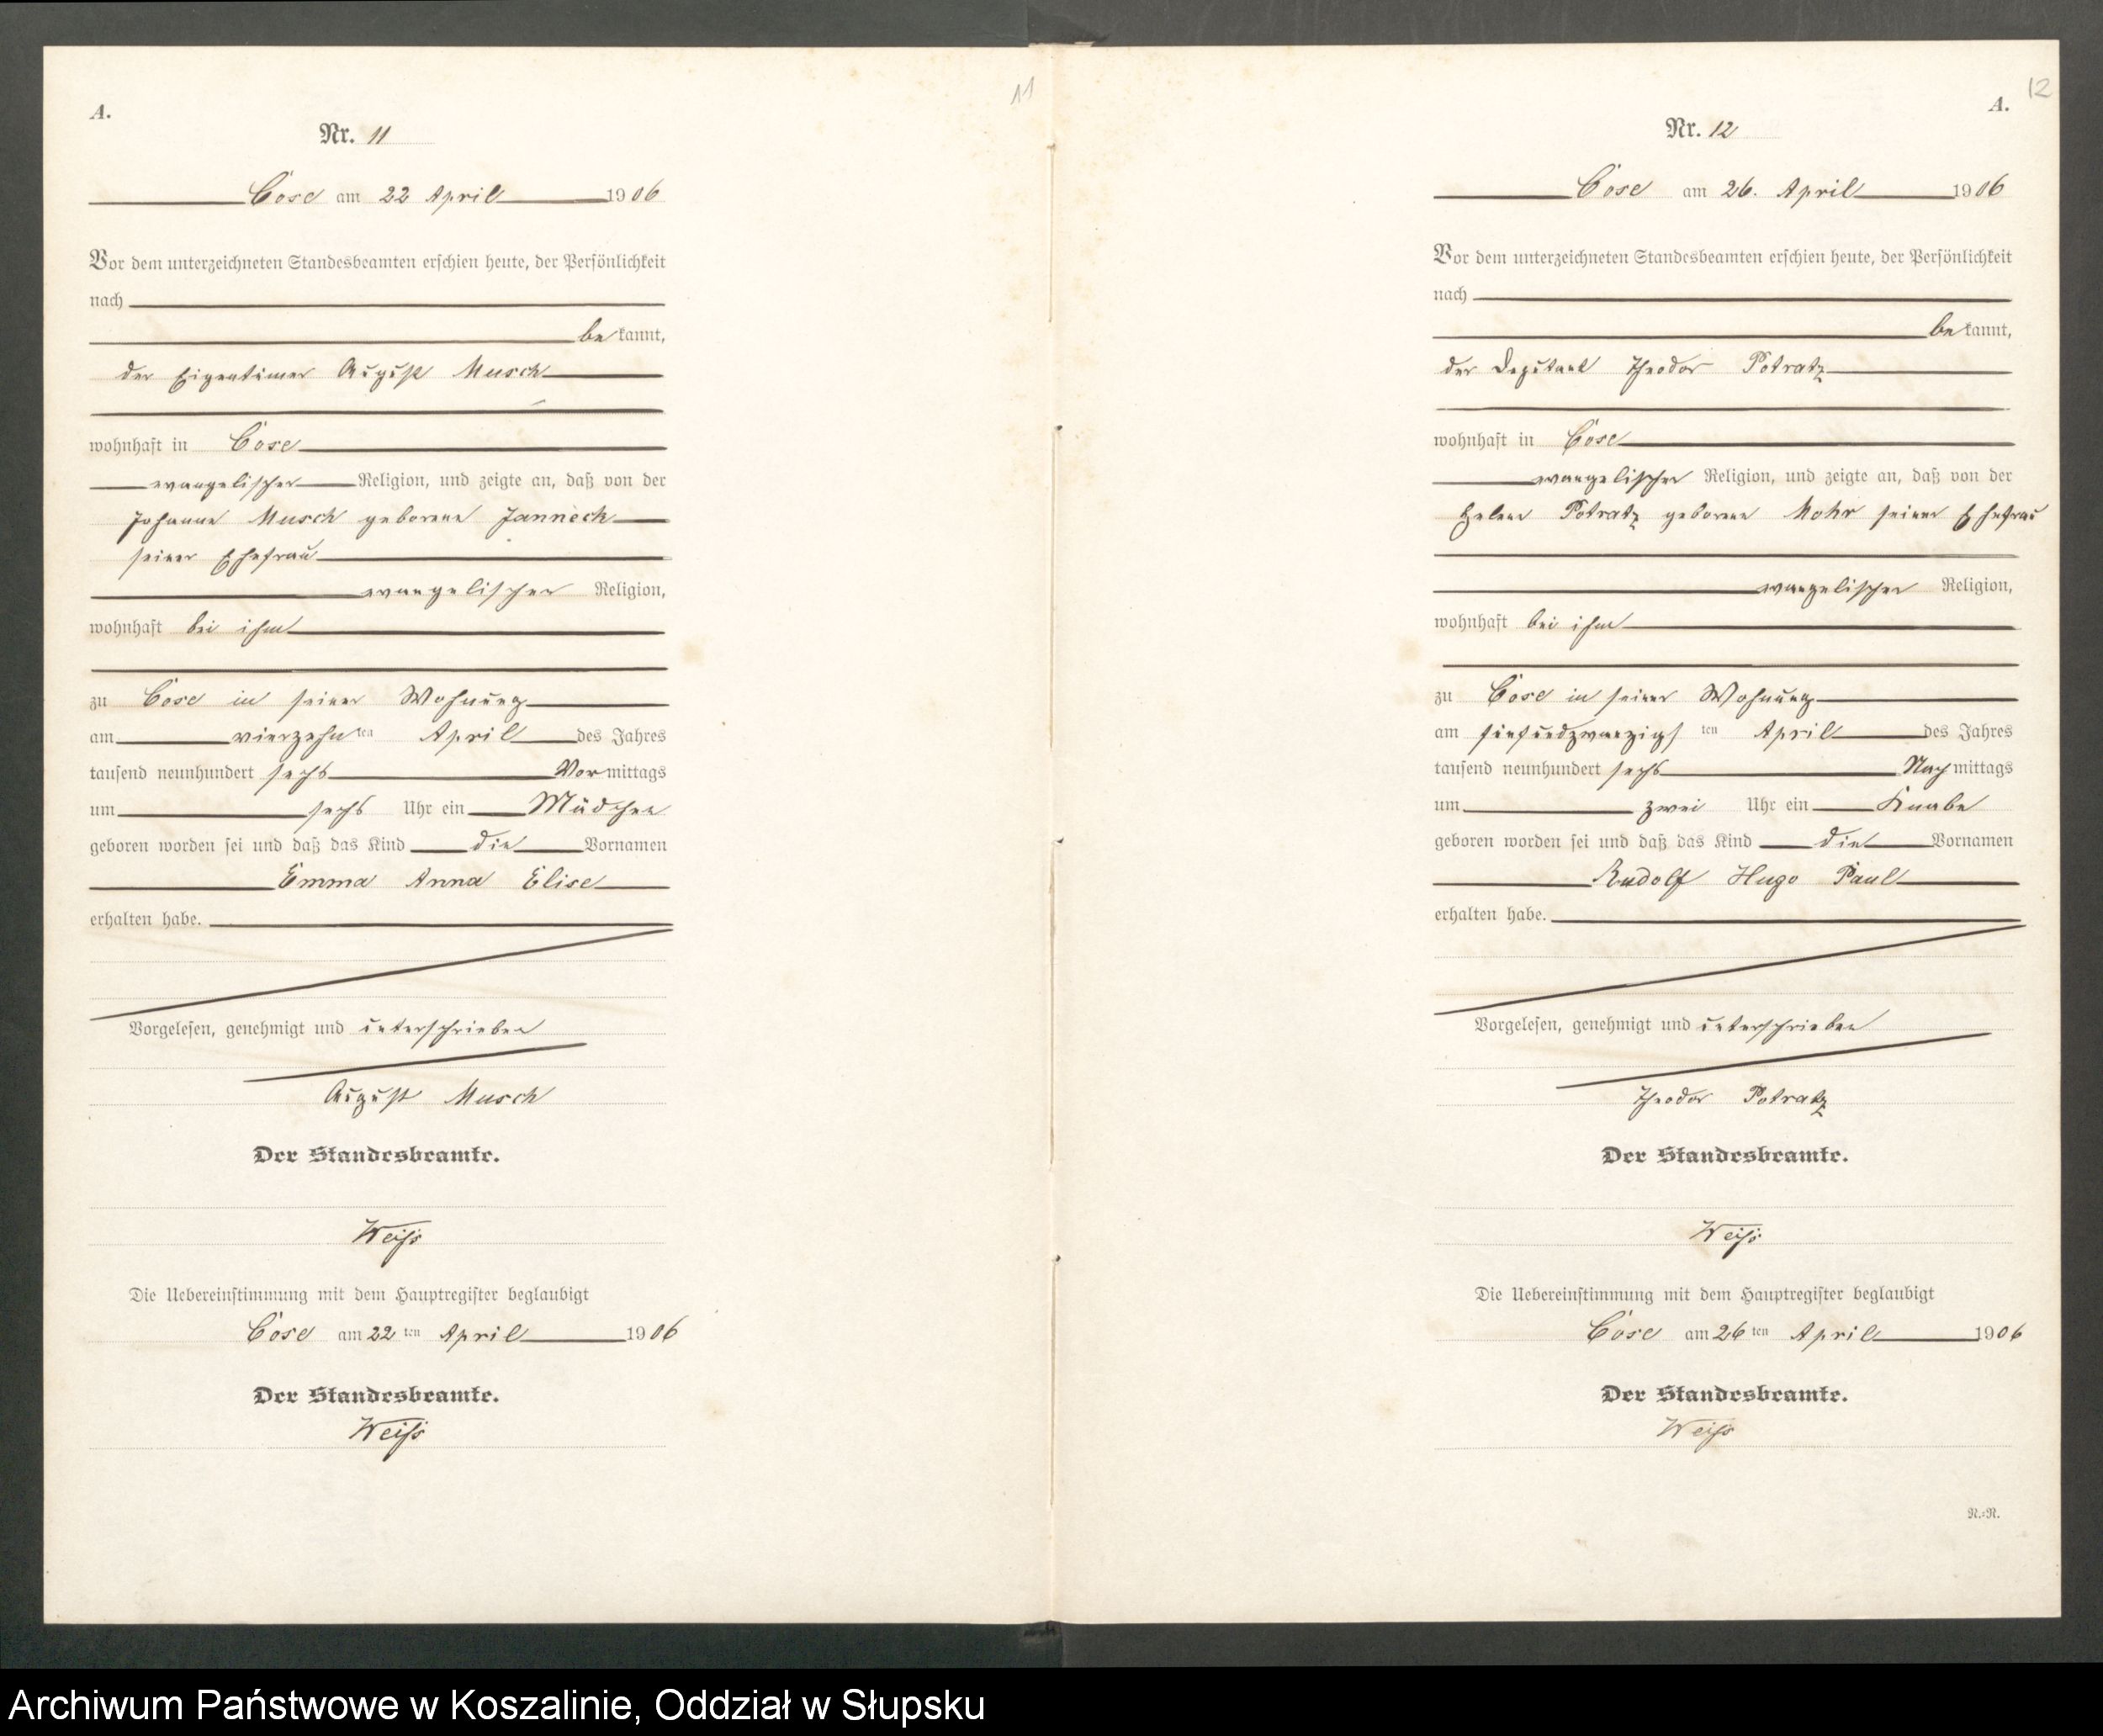 11
A.
Nr. 11
Cose am 22 April 1906
Vor dem unterzeichneten Standesbeamten erschien heute, der Persönlichkeit
nach
bekannt,
der Eigentümer August Musch
wohnhaft in Cose
evangelischer Religion, und zeigte an, daß von der
Johanne Musch geborene Janneck
seiner Ehefrau
evangelischer Religion,
wohnhaft bei ihm
zu Cose in seiner Wohnung
am vierzehnten April des Jahres
tausend neunhundert sechs Vormittags
um sechs Uhr ein Mädchen
geboren worden sei und daß das Kind die Vornamen
Emma Anna Elise
erhalten habe.
Vorgelesen, genehmigt und unterschrieben
August Musch
Der Standesbeamte.
Weiß
Die Uebereinstimmung mit dem Hauptregister beglaubigt
Cose am 22ten April 1906
Der Standesbeamte.
Weiß
12
A.
Nr. 12
Cose am 26. April 1906
Vor dem unterzeichneten Standesbeamten erschien heute, der Persönlichkeit
nach
bekannt,
der Deputant Theodor Potratz
wohnhaft in Cose
evangelischer Religion, und zeigte an, daß von der
Helene Potratz geborene Mohr seiner Ehefrau
evangelischer Religion,
wohnhaft bei ihm
zu Cose in seiner Wohnung
am fünfundzwanzigsten April des Jahres
tausend neunhundert sechs Nachmittags
um zwei Uhr ein Knabe
geboren worden sei und daß das Kind die Vornamen
Rudolf Hugo Paul
erhalten habe.
Vorgelesen, genehmigt und unterschrieben
Theodor Potratz
Der Standesbeamte.
Weiß
Die Uebereinstimmung mit dem Hauptregister beglaubigt
Cose am 26ten April 1906
Der Standesbeamte.
Weiß
N.=N.
Archiwum Państwowe w Koszalinie, Oddział w Słupsku